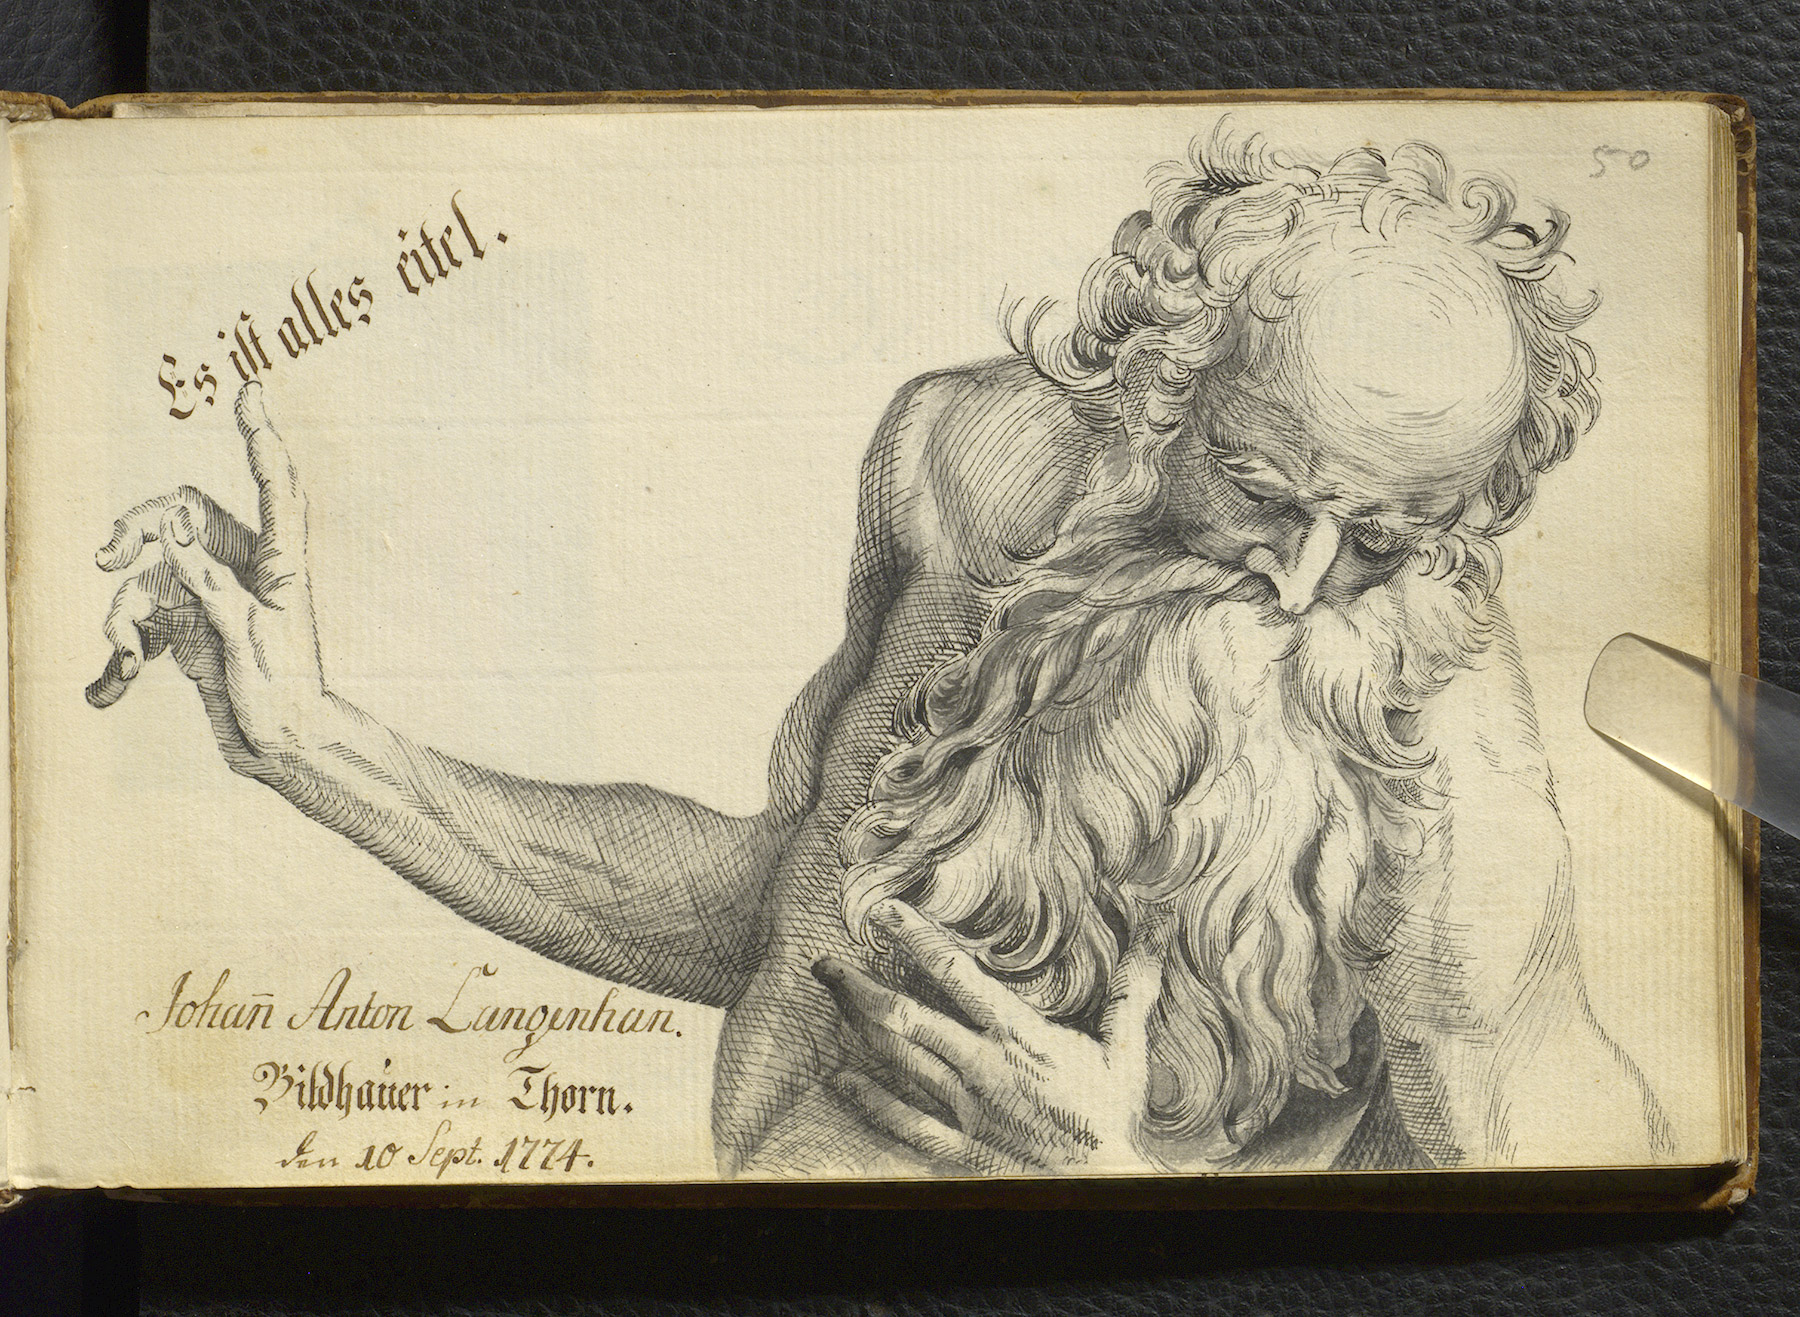 50
Es ist alles eitel.
Johan̄ Anton Langenhan.
Bildhauer in Thorn.
den 10 Sept. 1774.